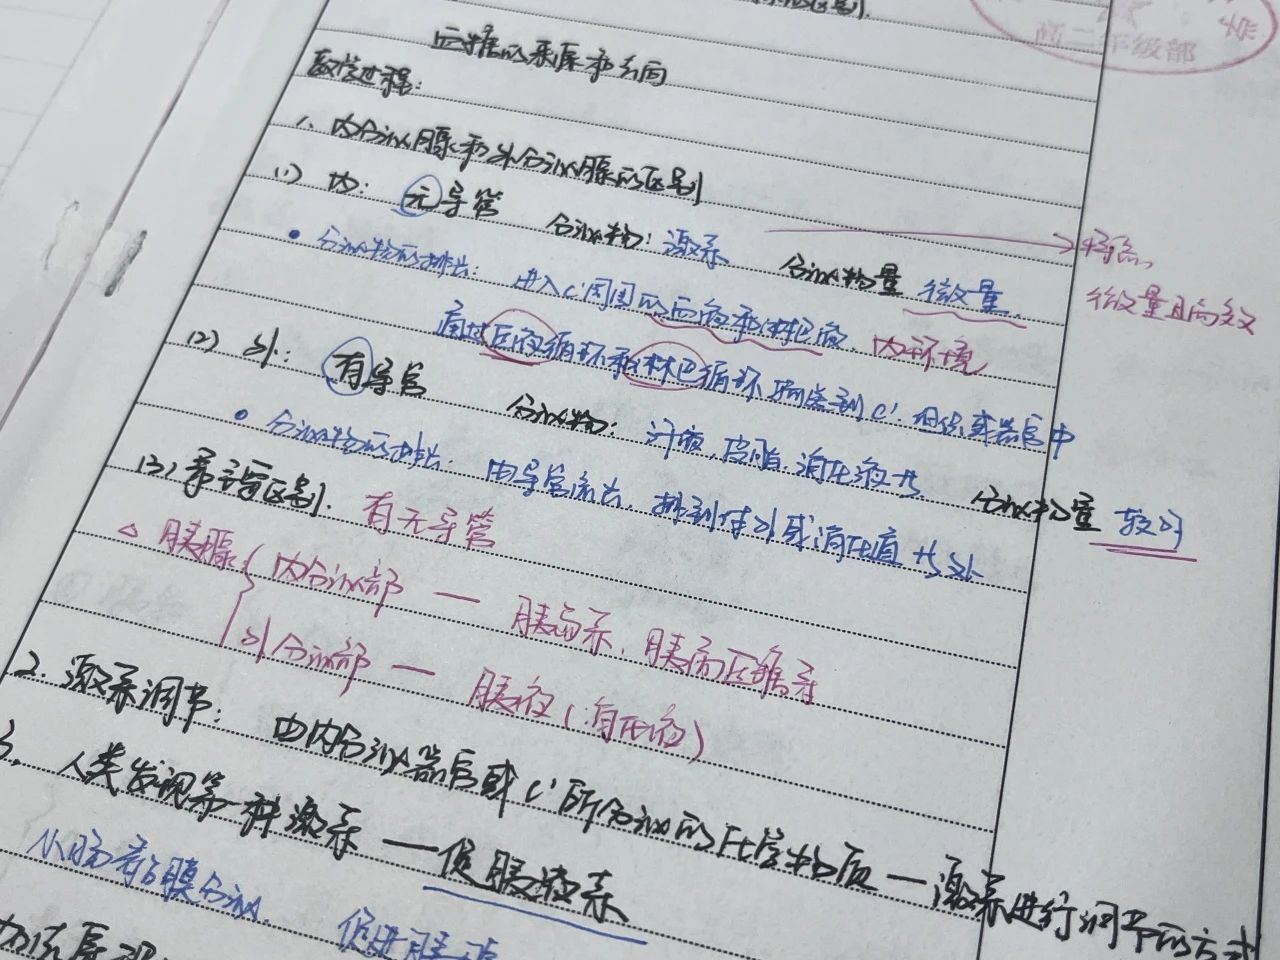 区别.
高二年级部
血糖的来源和去向
教学过程:
1. 内分泌腺和外分泌腺的区别
(1) 内: 无导管 分泌物: 激素 分泌物量 微量. → 特点:
微量且高效
• 分泌物的排出: 进入c'周围的血液和淋巴液. 内环境
通过血液循环和淋巴循环 到 c' 组织或器官中
(2) 外: 有导管 分泌物: 汗液, 皮脂, 消化液等. 分泌物量 较多
• 分泌物的排出: 由导管流出 排到体外或消化道等处
(3) 主要区别. 有无导管
△ 胰腺 { 内分泌部 — 胰岛素, 胰高血糖素
外分泌部 — 胰液 (消化液)
2. 激素调节: 由内分泌器官或c'所分泌的化学物质 — 激素进行调节的方式
3. 人类发现第一种激素 — 促胰液素
小肠黏膜分泌. 促进胰